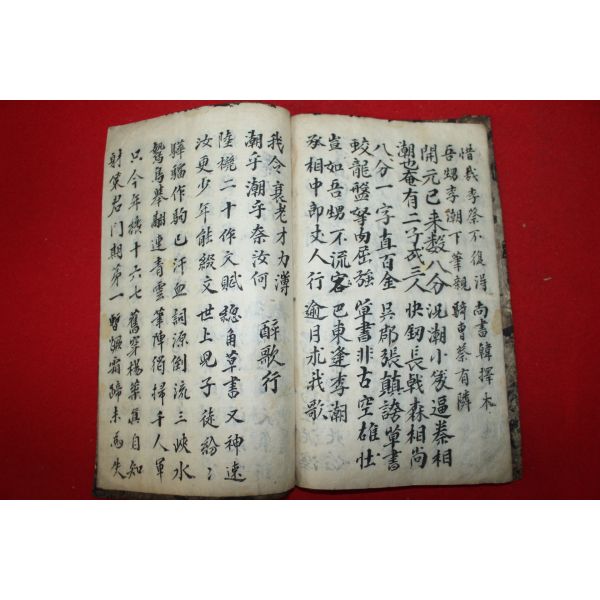 惜哉李蔡不復得 尚書韓擇木
吾甥李潮下筆親 騎曹蔡有隣
開元已来数八分 况潮小篆逼秦相
潮也奄有二子成三人 快釰長戟森相尚
八分一字直百金 吳郡張顚誇草書
蛟龍盤拏肉屈强 草書非古空雄壮
豈如吾甥不流宕 巴東逢李潮
丞相中郎丈人行 逾月求我歌
我今衰老才力薄
潮乎潮乎奈汝何 醉歌行
陸機二十作文賦 總角草書又神速
汝更少年能綴文 世上兒子徒紛〻
驊騮作駒已汗血 詞源倒流三峽水
鷙鳥擧翮連青雲 筆陣獨掃千人軍
只今年纔十六七 舊穿楊葉眞自知
射策君門期第一 暫蹶霜蹄未爲失